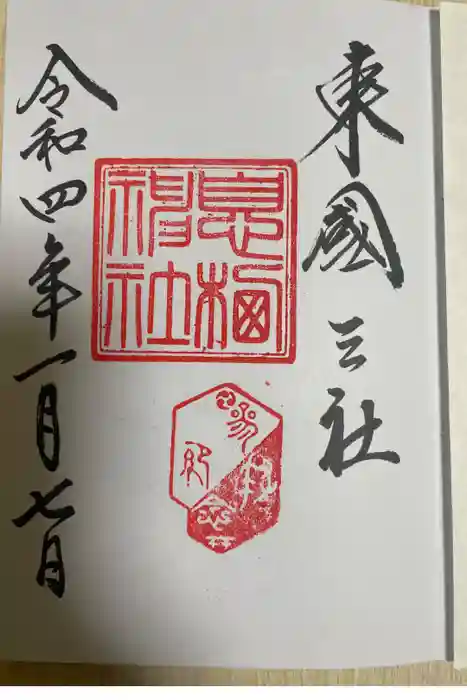 東國三社
息栖
神社
令和四年一月七日